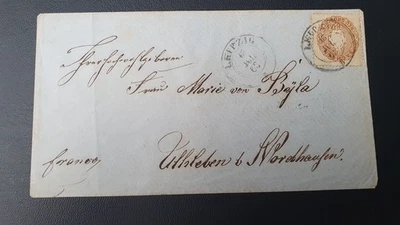 LEIPZIG
LEIPZIG
Ihrer Hochwohlgeboren
Frau Marie von Byla
franco
Uthleben b Nordhausen.